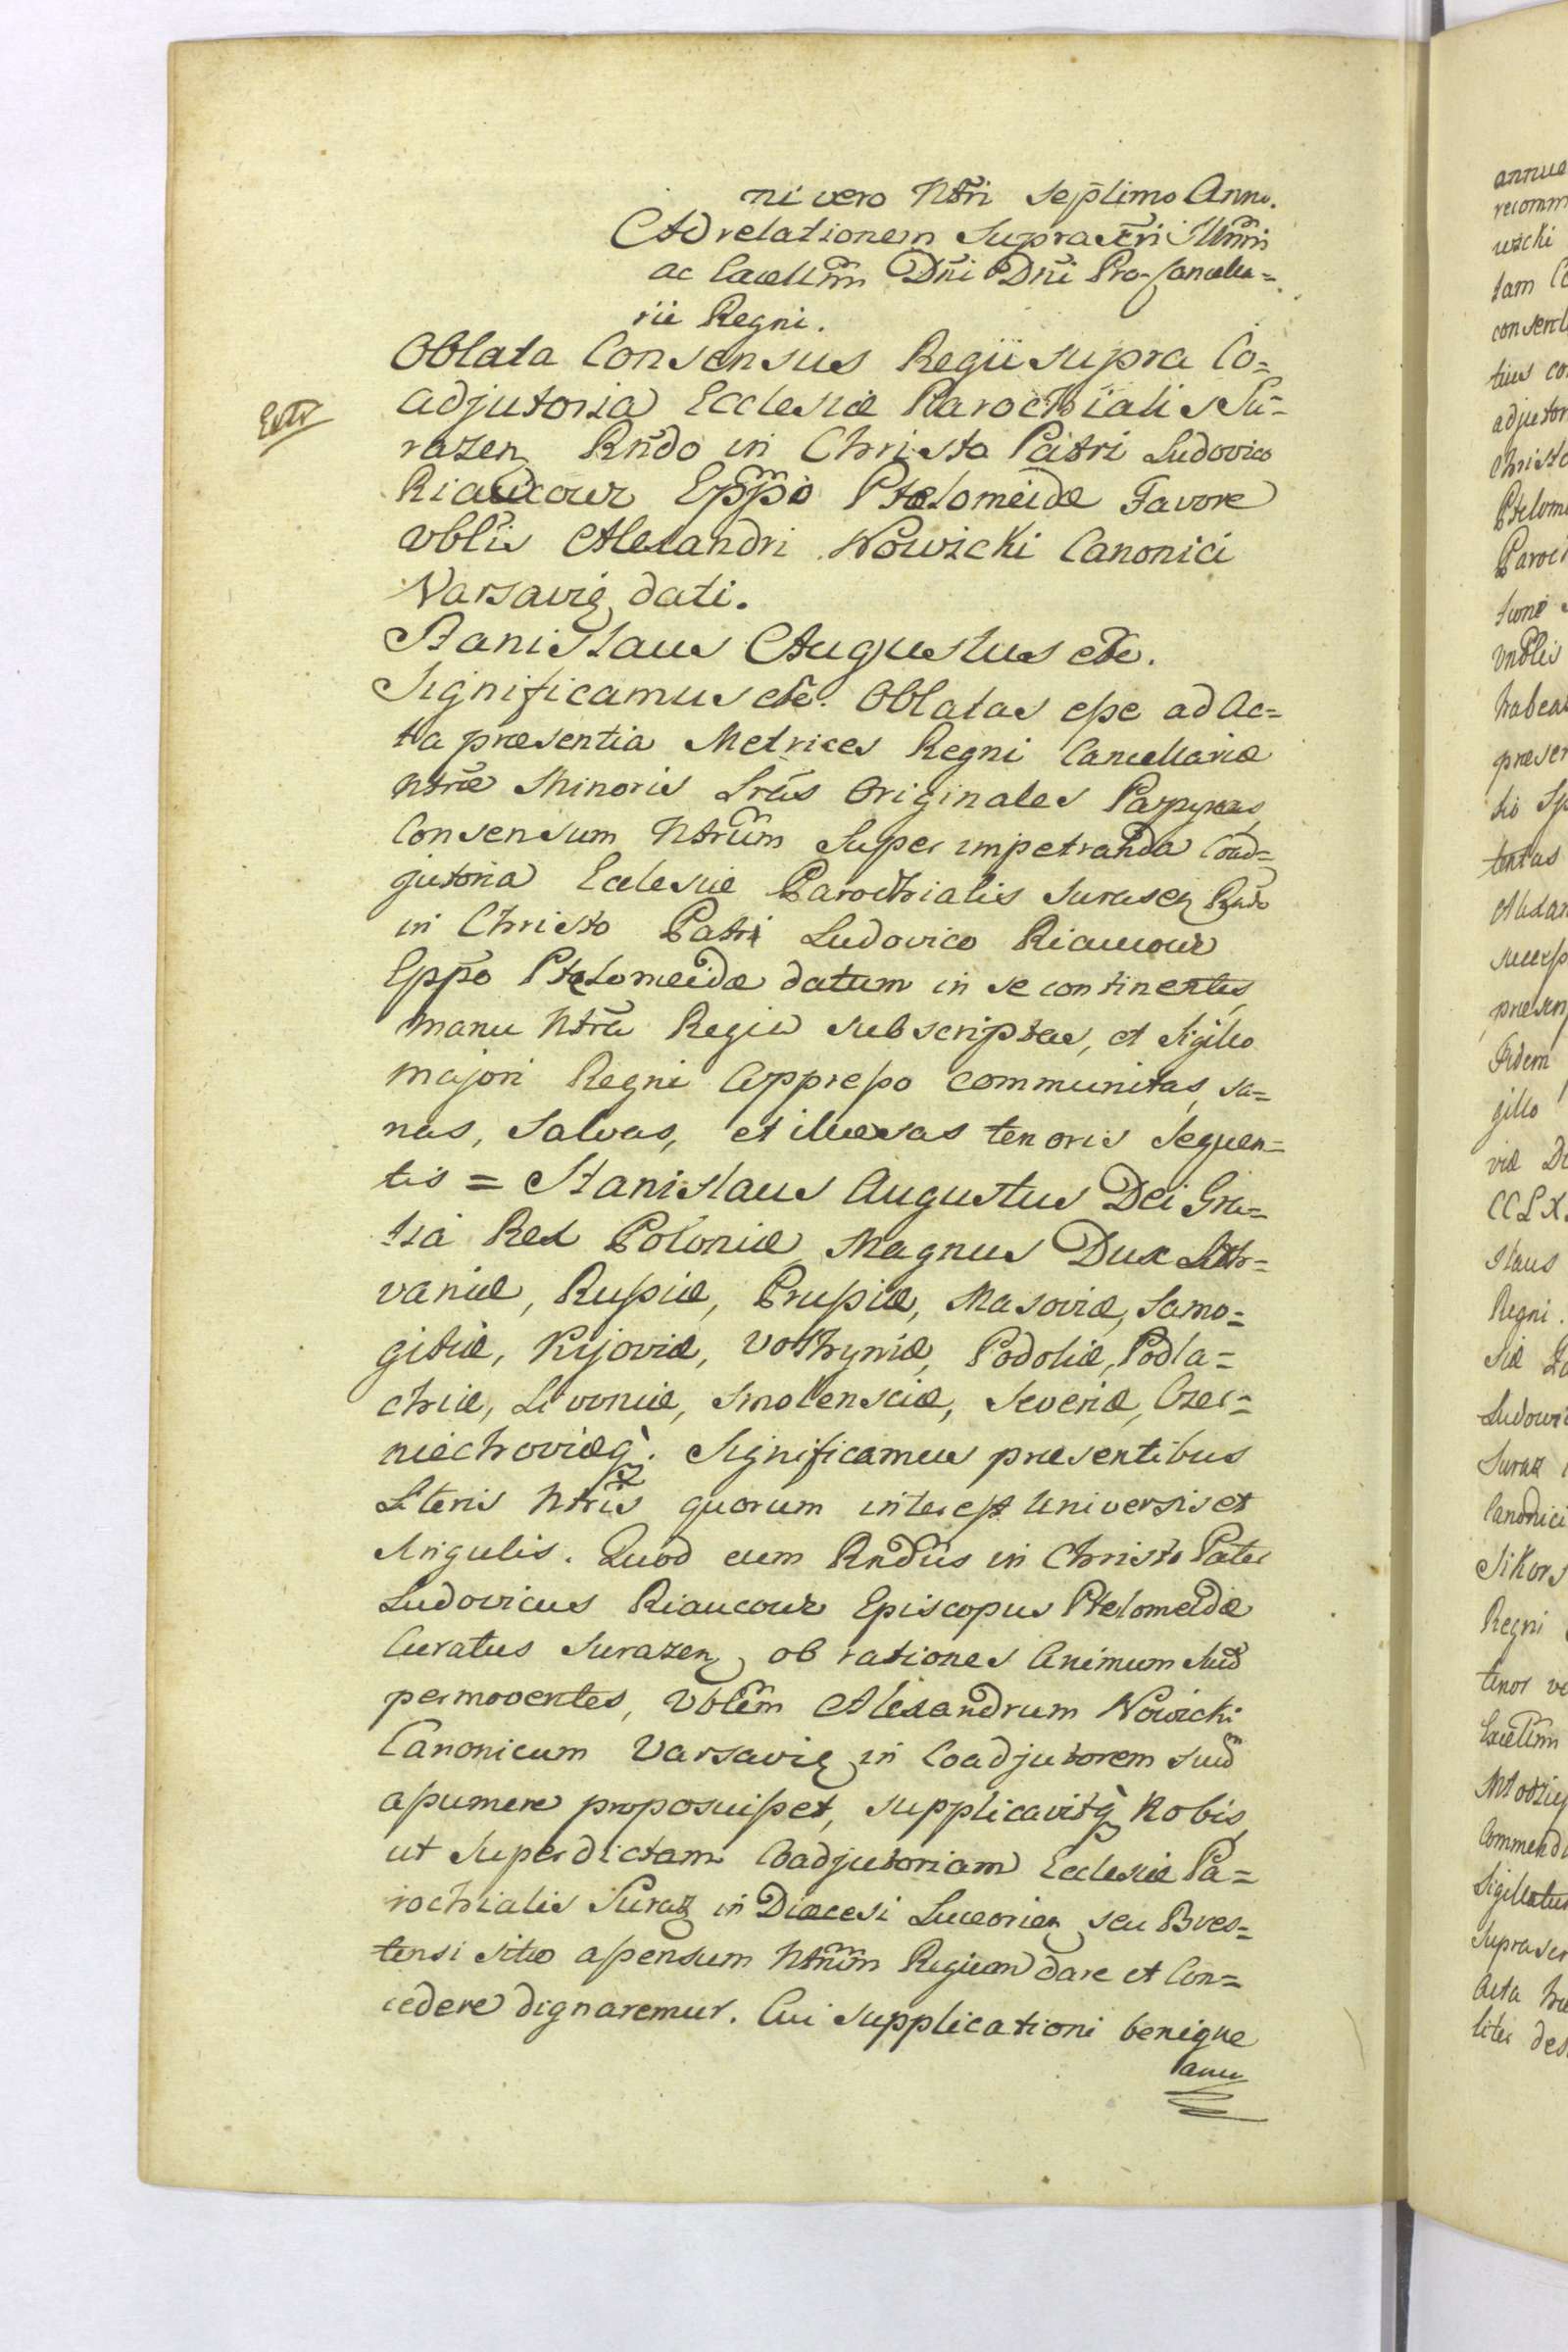 ni vero Ntri septimo Anno.
Ad relationem supra scri Illmi
ac Excellmi Dni Dni Pro-Cancella=
rii Regni.
Oblata Consensus Regii supra Co=
Extr
adjutoria Ecclesiæ Parochialis Su=
razen Rndo in Christo Patri Ludovico
Riaucour Eppo Ptolomeidæ Favore
Vblis Alexandri Nowicki Canonici
Varsavię dati.
Stanislaus Augustus etc.
Significamus etc. Oblatas esse ad Ac=
ta præsentia Metrices Regni Cancellariæ
Ntræ Minoris Lras Originales Papyreas,
Consensum Ntrum super impetranda Coad=
jutoria Ecclesiæ Parochialis Surasen Rndo
in Christo Patri Ludovico Riaucour
Eppo Ptolomeidæ datum in se continentes,
manu Ntra Regia subscriptas, et Sigillo
majori Regni Appresso communitas, sa=
nas, salvas, et illæsas tenoris sequen=
tis = Stanislaus Augustus Dei Gra=
tia Rex Poloniæ, Magnus Dux Lith=
vaniæ, Russiæ, Prussiæ, Masoviæ, Samo=
gitiæ, Kijoviæ, Volhyniæ, Podoliæ, Podla=
chiæ, Livoniæ, Smolensciæ, Severiæ, Czer=
niechoviæq. Significamus præsentibus
Literis Ntris quorum interest Universis et
Singulis. Quod cum Rndus in Christo Pater
Ludovicus Riaucour Episcopus Ptolomeidæ
Curatus Surazen, ob rationes Animum suũ
permoventes, Vblem Alexandrum Nowicki
Canonicum Varsavię in Coadjutorem suũ
assumere proposuisset, supplicavitq Nobis,
ut super dictam Coadjutoriam Ecclesiæ Pa=
rochialis Suraz in Diæcesi Luceorien seu Bres=
tensi sitæ assensum Ntrum Regium dare et Con=
cedere dignaremur. Cui supplicationi benigne
annu
annue
recomm
wicki
tam C
consent
tius co
adjutor
Christo
Ptolome
Paroch
tione
Vnblis
habea
præsen
tio Sp
tentas
Alexan
success
præsen
Fidem
gillo
viæ D
CCLX
slaus
Regni.
siæ
Ludovic
Suraz
Canonici
Sikors
Regni
tenor ve
Excellmi
Młodziej
Commend
Sigillatu
supra scr
Acta
liter des